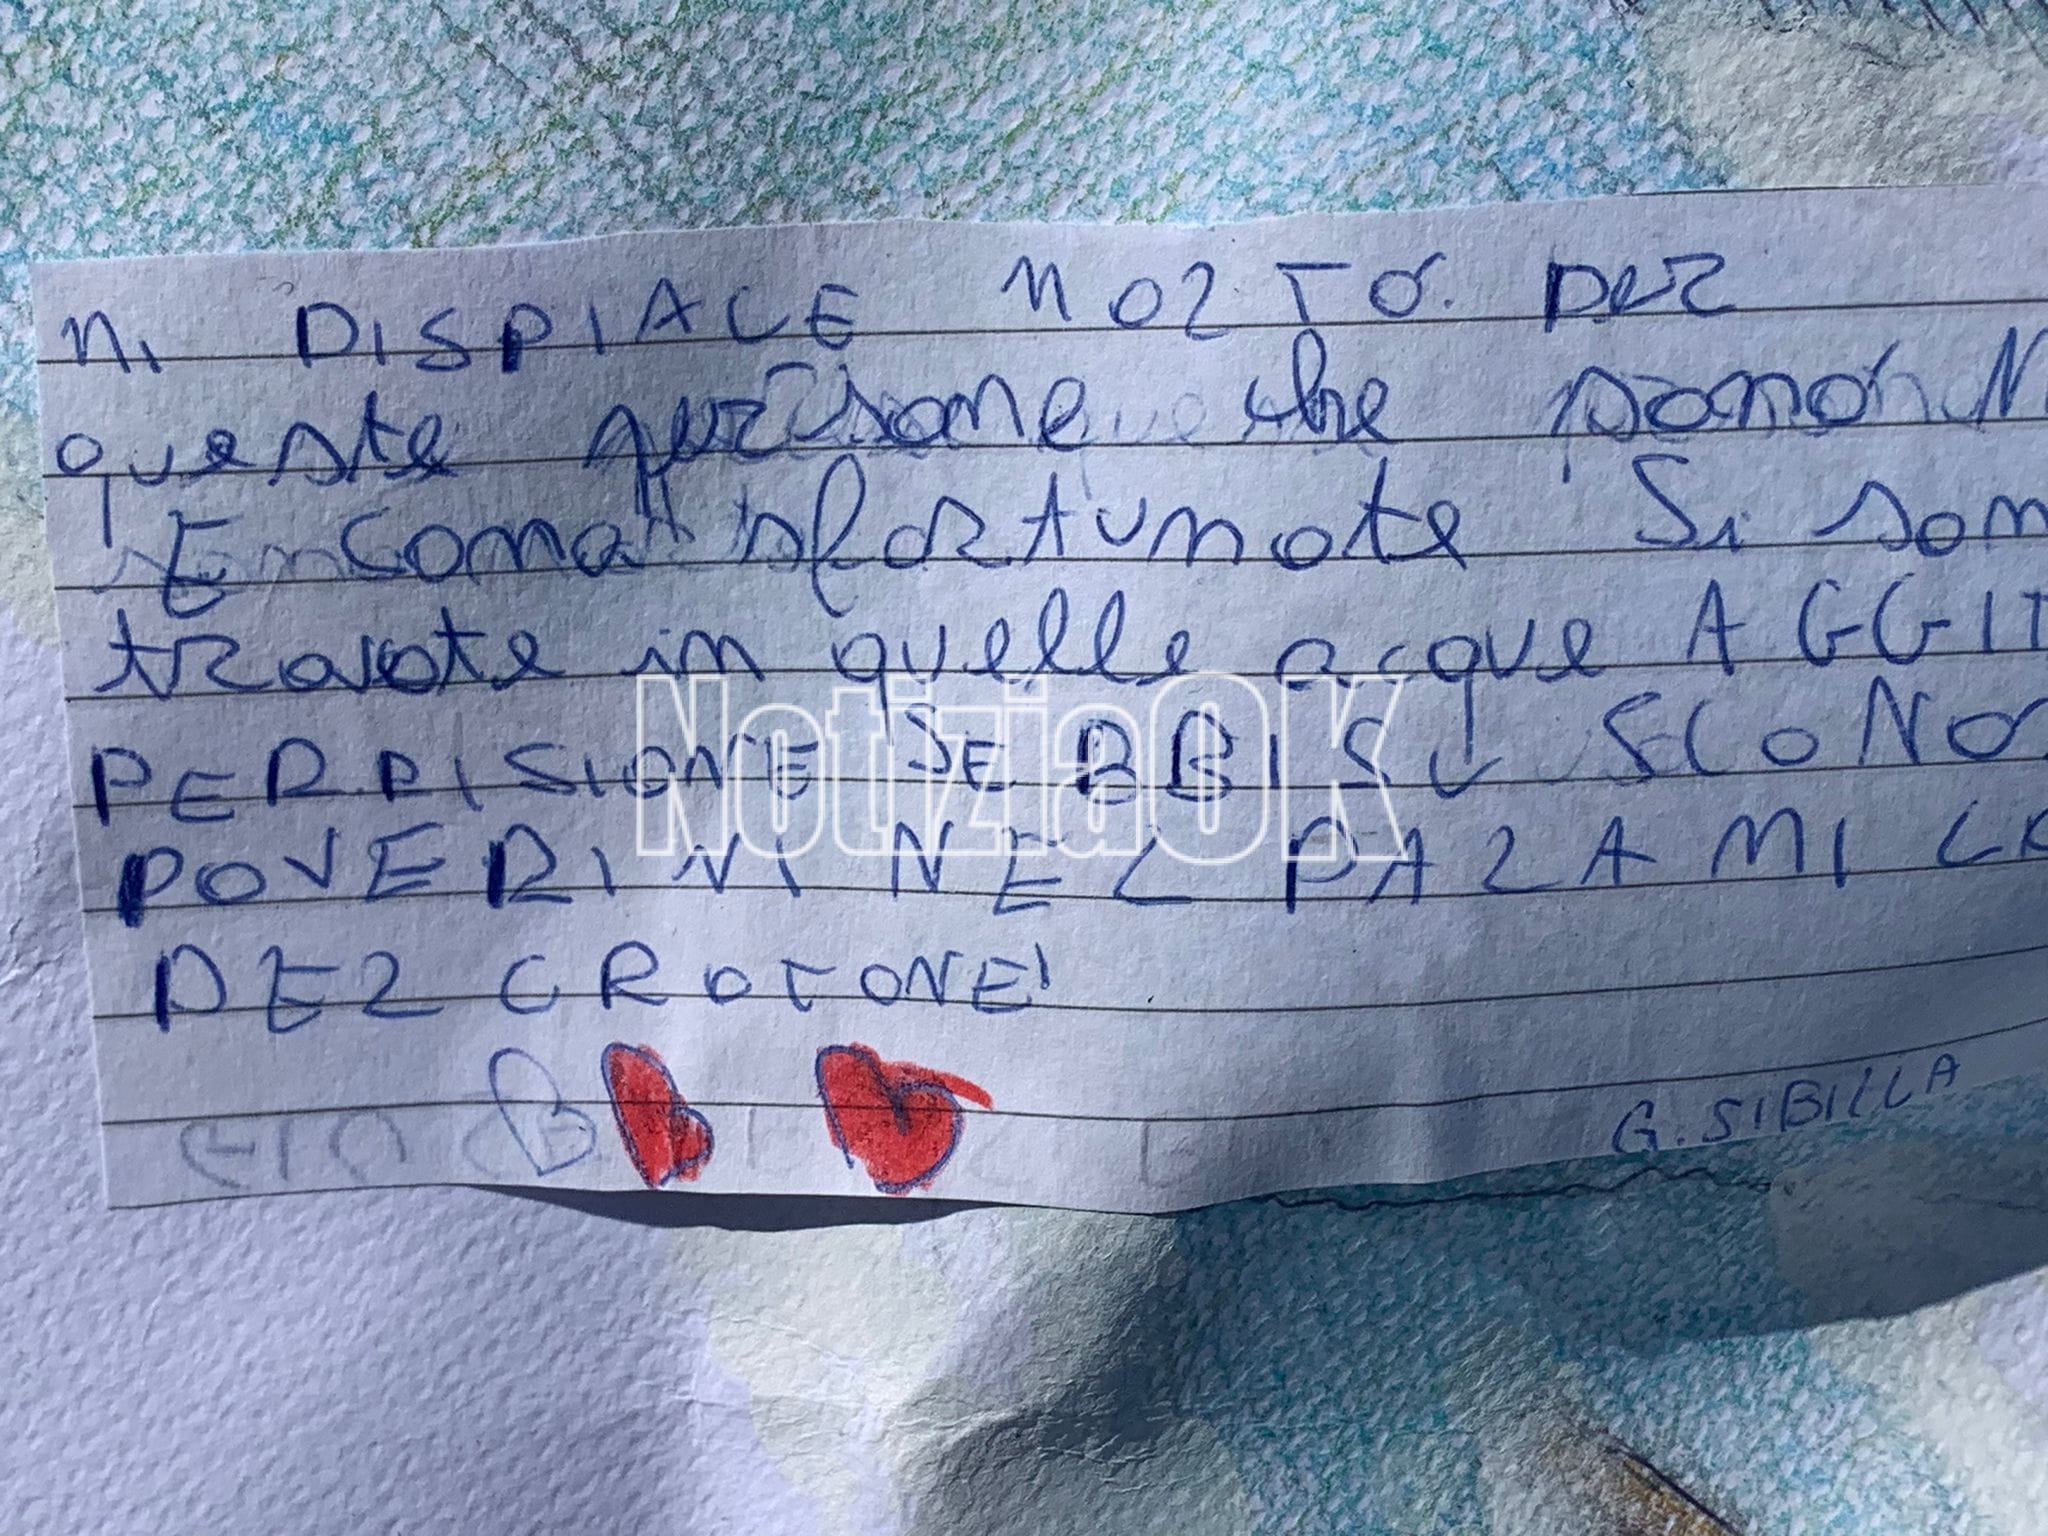 MI DISPIACE MOLTO. PER
queste persone che sono N
E sfortunate Si son
trovate in quelle acque AGGIT
PERDISIONE SEBBI SU SCONO
POVERINI NEL PALAMILO
DEL CROTONE!
G. SIBILLA
NotiziaOK